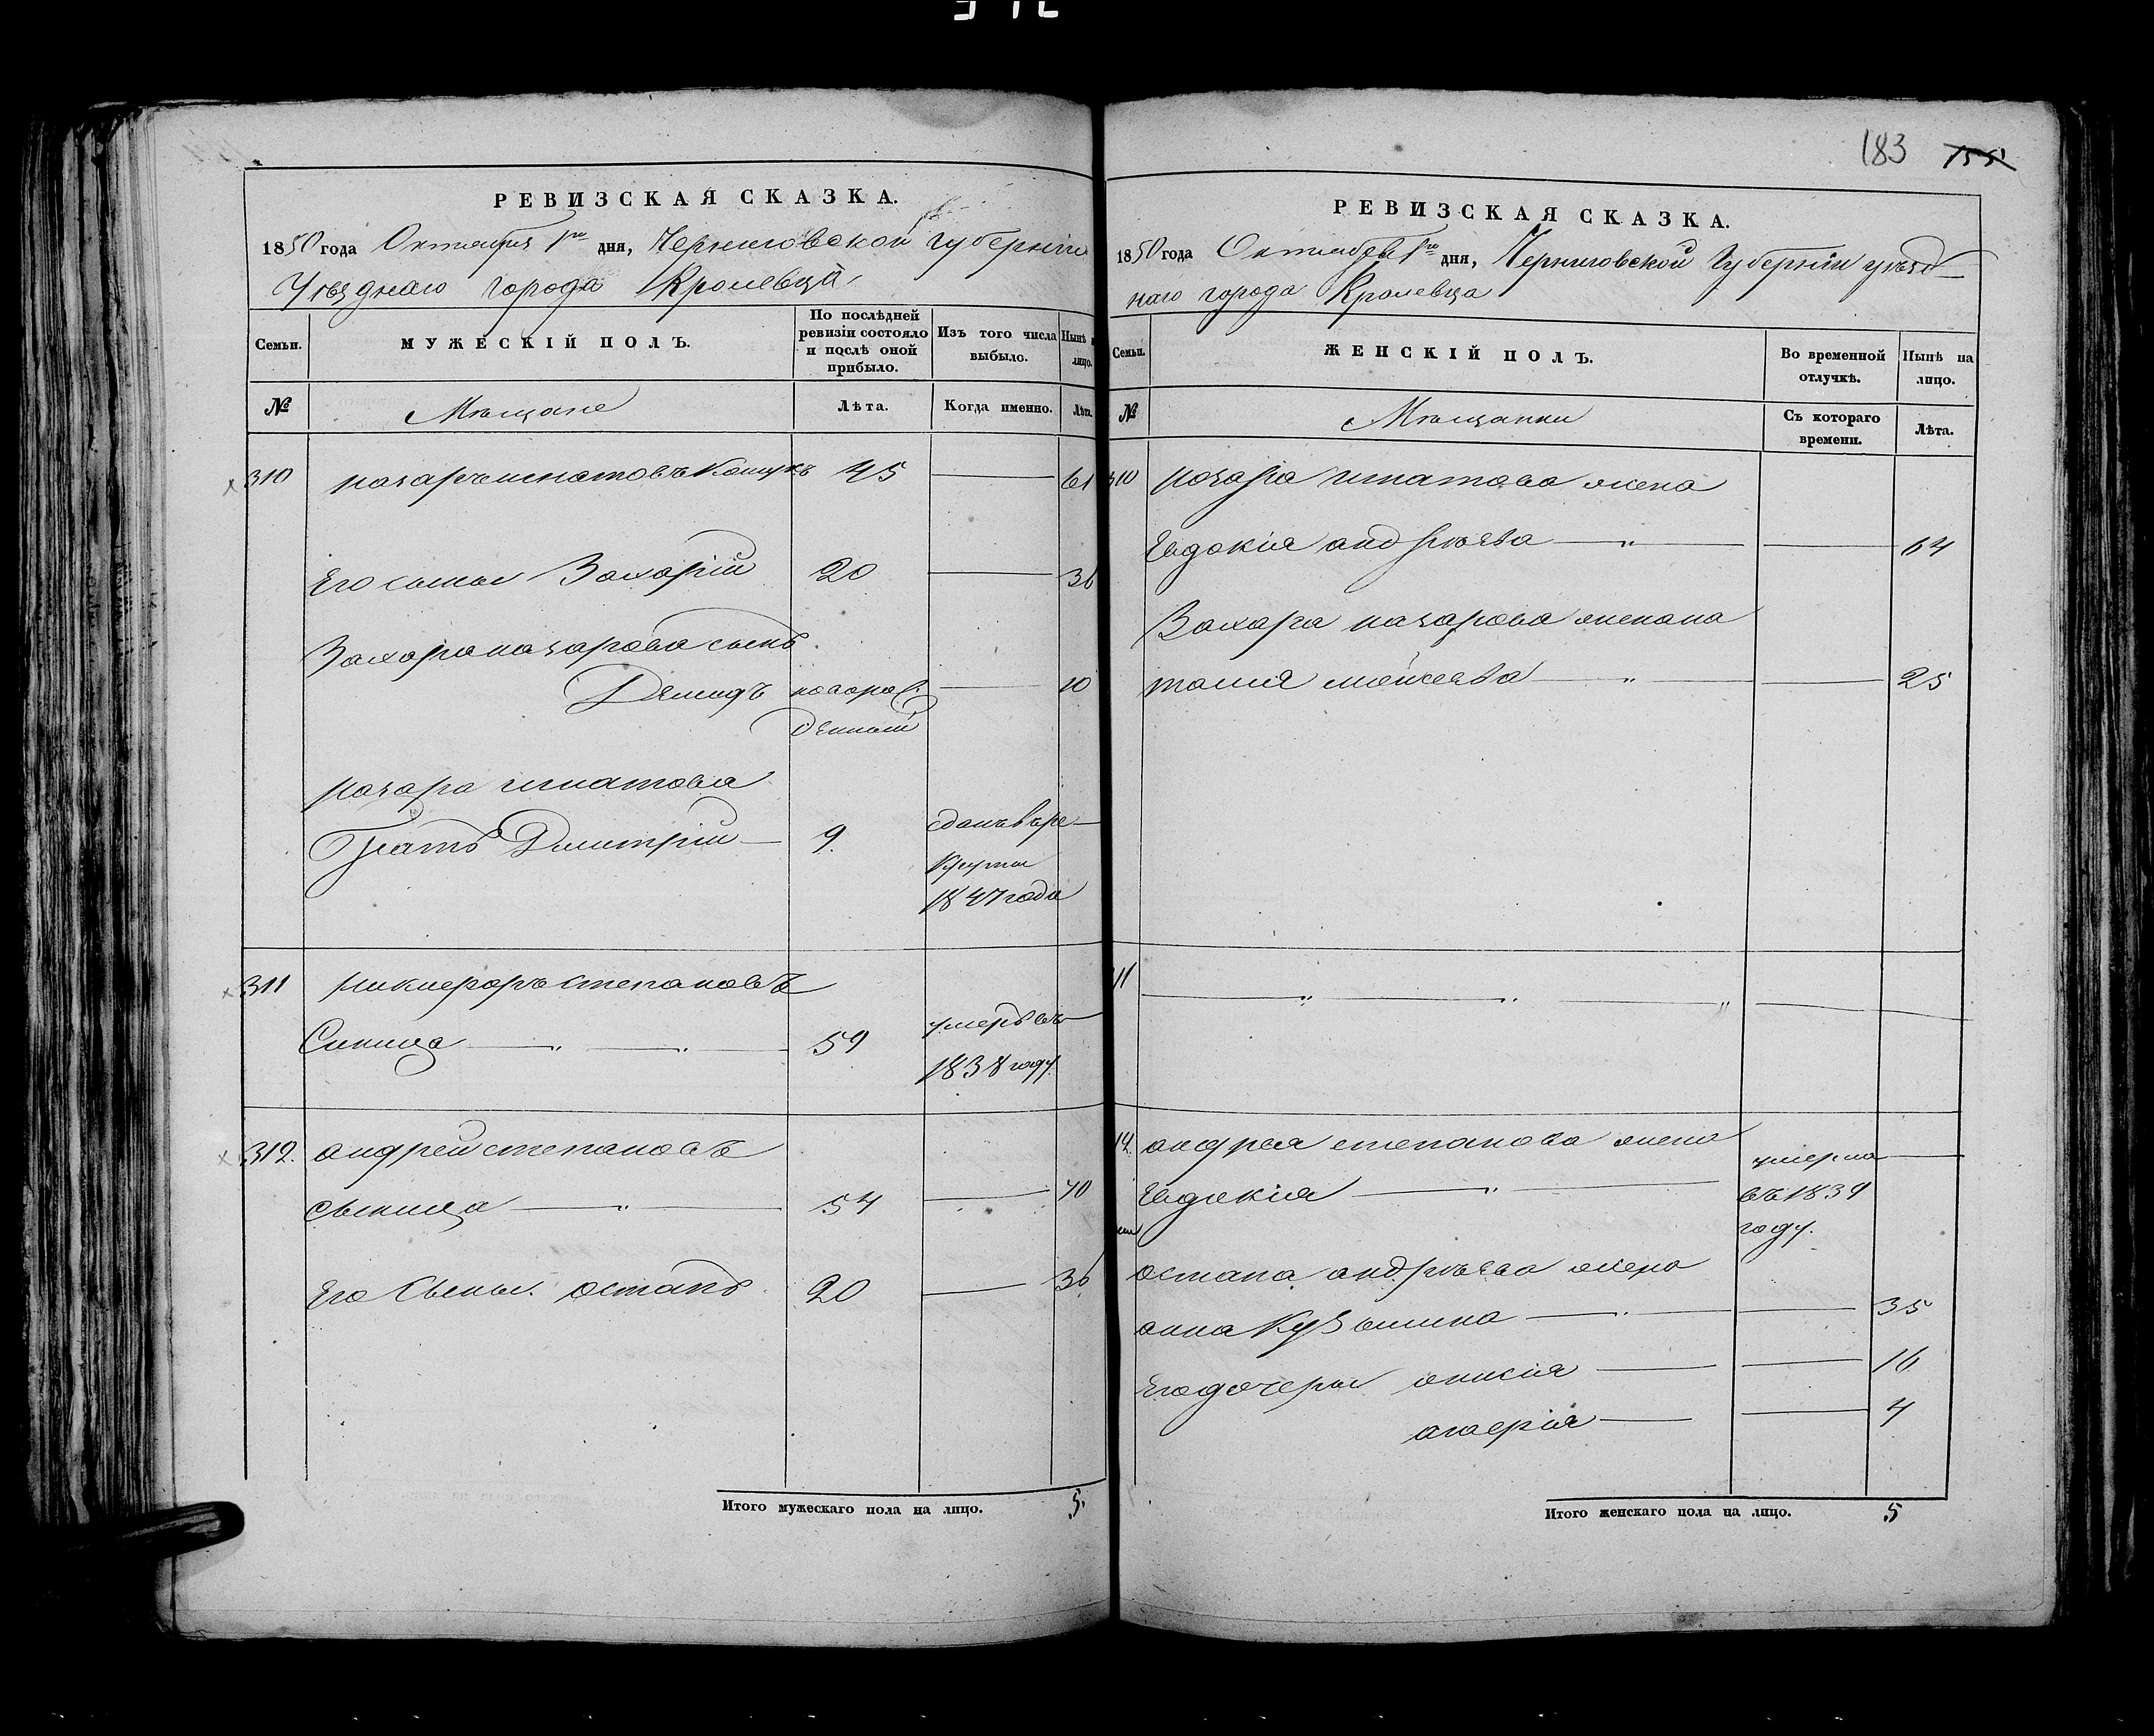 183 155
РЕВИЗСКАЯ СКАЗКА.
1850 года Октября 1го дня, Черниговской губерніи
Уѣзднаго города Кролевца
Семьи.
МУЖЕСКІЙ ПОЛЪ.
По послѣдней ревизіи состояло и послѣ оной прибыло.
Изъ того числа выбыло.
Нынѣ на лицо.
№
Мѣщане
Лѣта.
Когда именно.
Лѣта.
310 назаръ игнатовъ 45 — 61
Его сыны Захарій 20 — 36
Захара назарова сынъ
Демидъ новорож — 10
денный
назара игнатова
Братъ Дмитрій — 9. сданъ въ ре
круты
1847 года
311 никифоръ степановъ
Синица — „ — „ — 59 умеръ въ
1838 году.
312. андрей степановъ
сыница — „ — 54 — 70
Его Сыны. остапъ 20 — 36
Итого мужескаго пола на лицо. 5.
РЕВИЗСКАЯ СКАЗКА.
1850 года Октября 1го дня, Черниговской Губерніи уѣзд
наго города Кролевца
Семьи.
ЖЕНСКІЙ ПОЛЪ.
Во временной отлучкѣ.
Нынѣ на лицо.
№
Мѣщанки
Съ котораго времени.
Лѣта.
310 назара игнатова жена
Евдокія андрѣева — „ — — 64
Захара назарова жена на
талія моисеева — „ — — 25
11 — „ — „ — „ —
12. андрея степанова жена умерла —
Евдокія — „ — въ 1839
году.
остапа андрѣева жена
анна Кузьмина — „ — — 35
Его дочеры — — 16
— — 4
Итого женскаго пола на лицо. 5